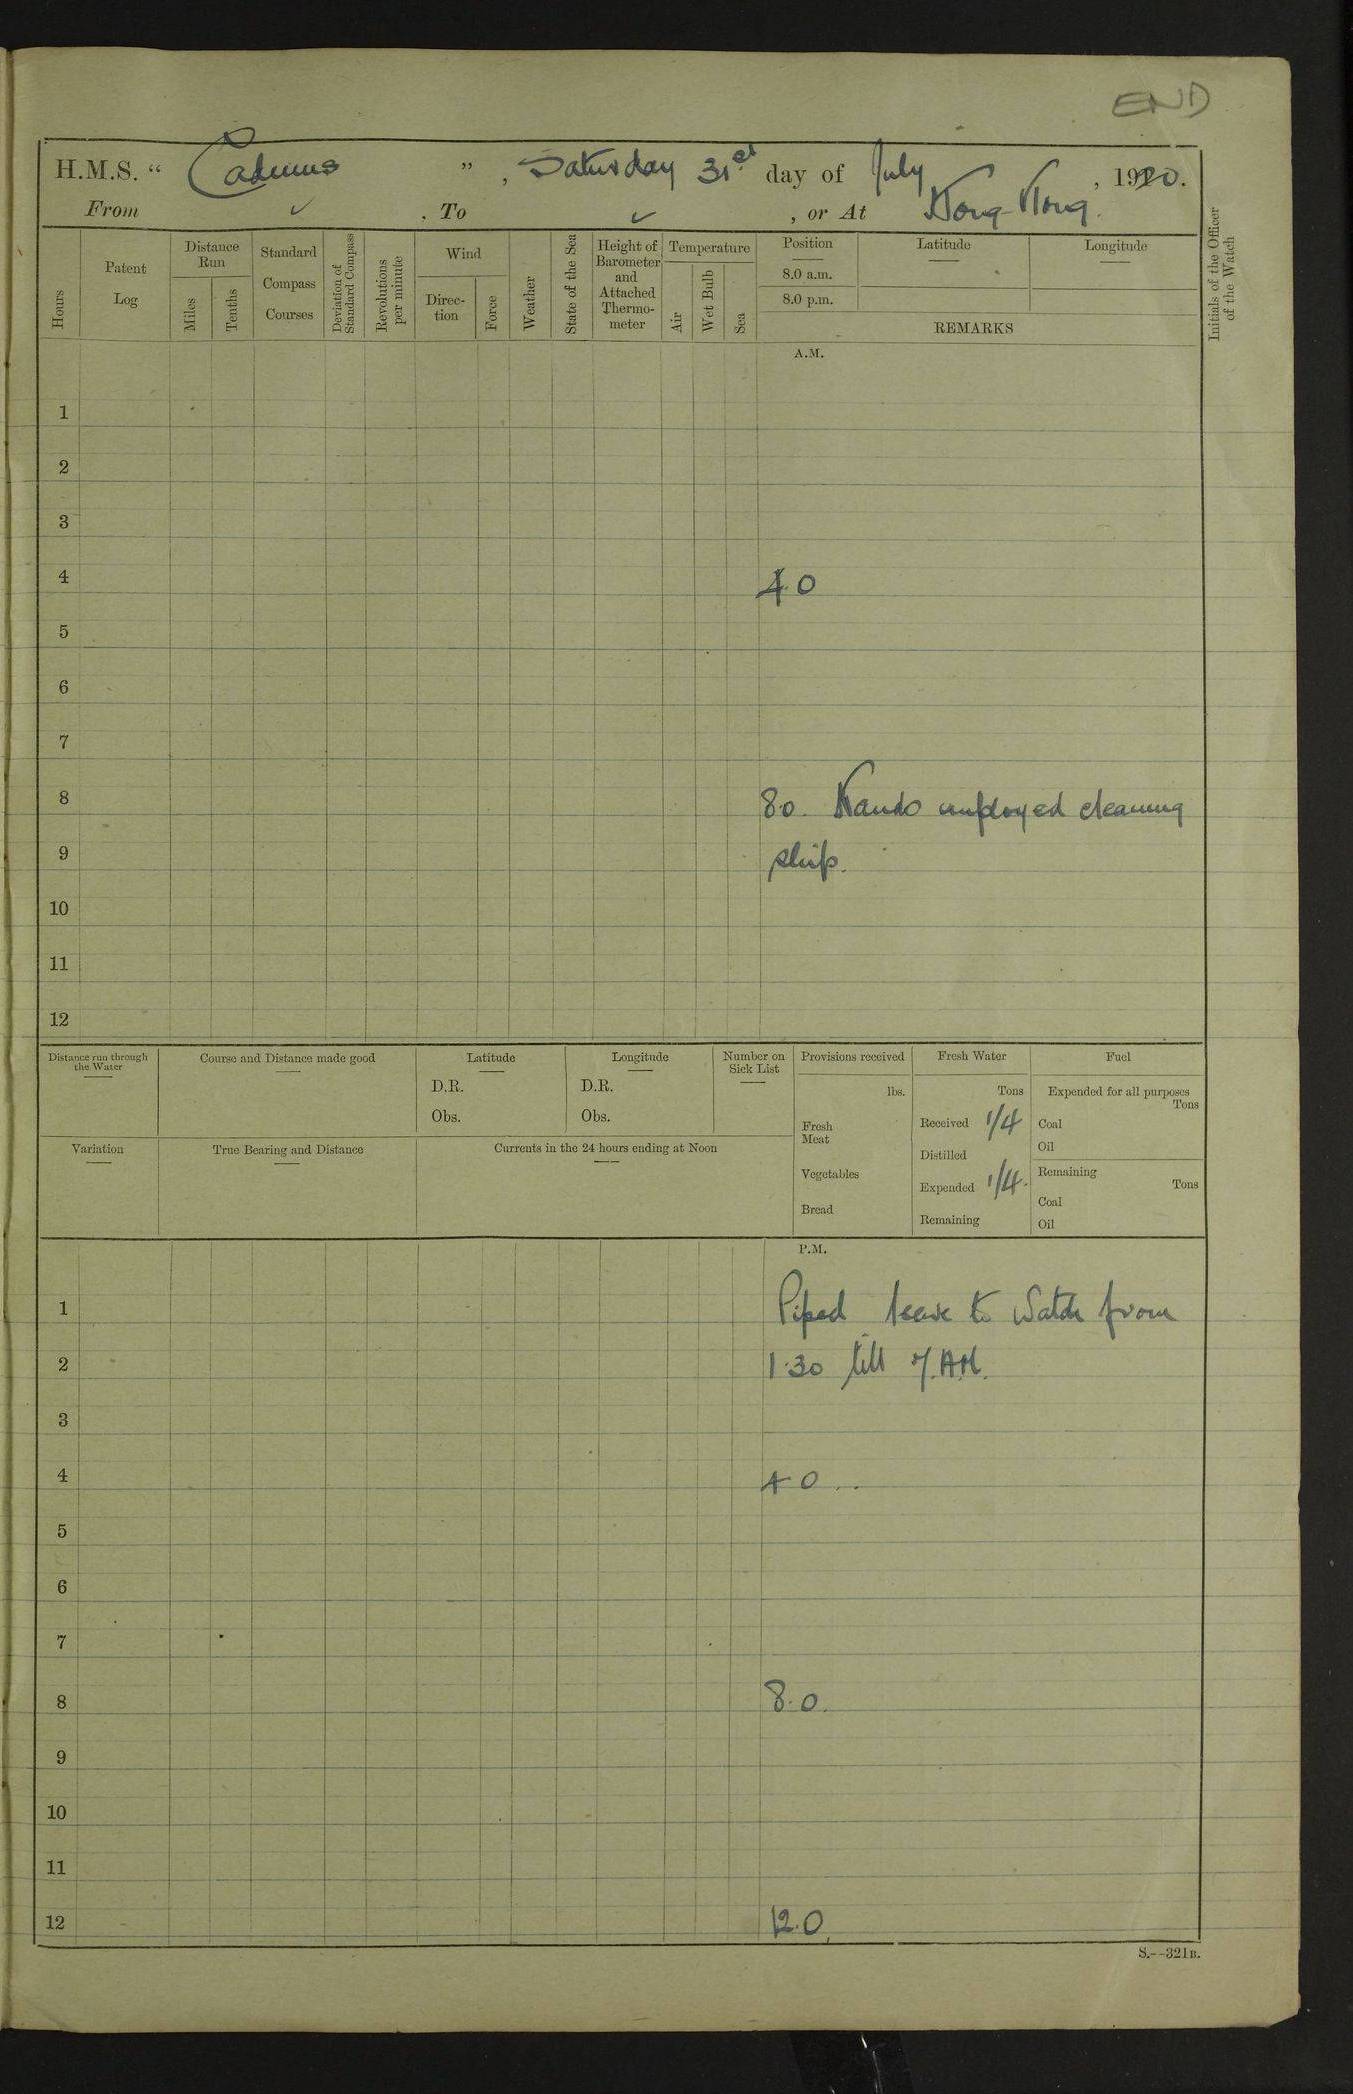 END
H.M.S. “ Cadmus ” , Saturday 31st day of July , 1920.
From ✓ , To ✓ , or At Hong-Kong.
Hours
Patent Log
Distance Run
Miles
Tenths
Standard Compass Courses
Deviation of Standard Compass
Revolutions per minute
Wind
Direc-
tion
Force
Weather
State of the Sea
Height of Barometer and Attached Thermo-
meter
Temperature
Air
Wet Bulb
Sea
Position
Latitude
Longitude
8.0 a.m.
8.0 p.m.
REMARKS
Initials of the Officer of the Watch
A.M.
1
2
3
4 4.0
5
6
7
8 8.0. Hands employed cleaning
9 ship.
10
11
12
Distance run through the Water
Course and Distance made good
Latitude
D.R.
Obs.
Longitude
D.R.
Obs.
Number on Sick List
Provisions received
lbs.
Fresh Meat
Vegetables
Bread
Fresh Water
Tons
Received 1/4
Distilled
Expended 1/4.
Remaining
Fuel
Expended for all purposes
Tons
Coal
Oil
Remaining
Tons
Coal
Oil
Variation
True Bearing and Distance
Currents in the 24 hours ending at Noon
P.M.
1 Piped leave to Watch from
2 1.30 till 7.AM.
3
4 4.0...
5
6
7
8 8.0.
9
10
11
12 12.0.
S.--321B.